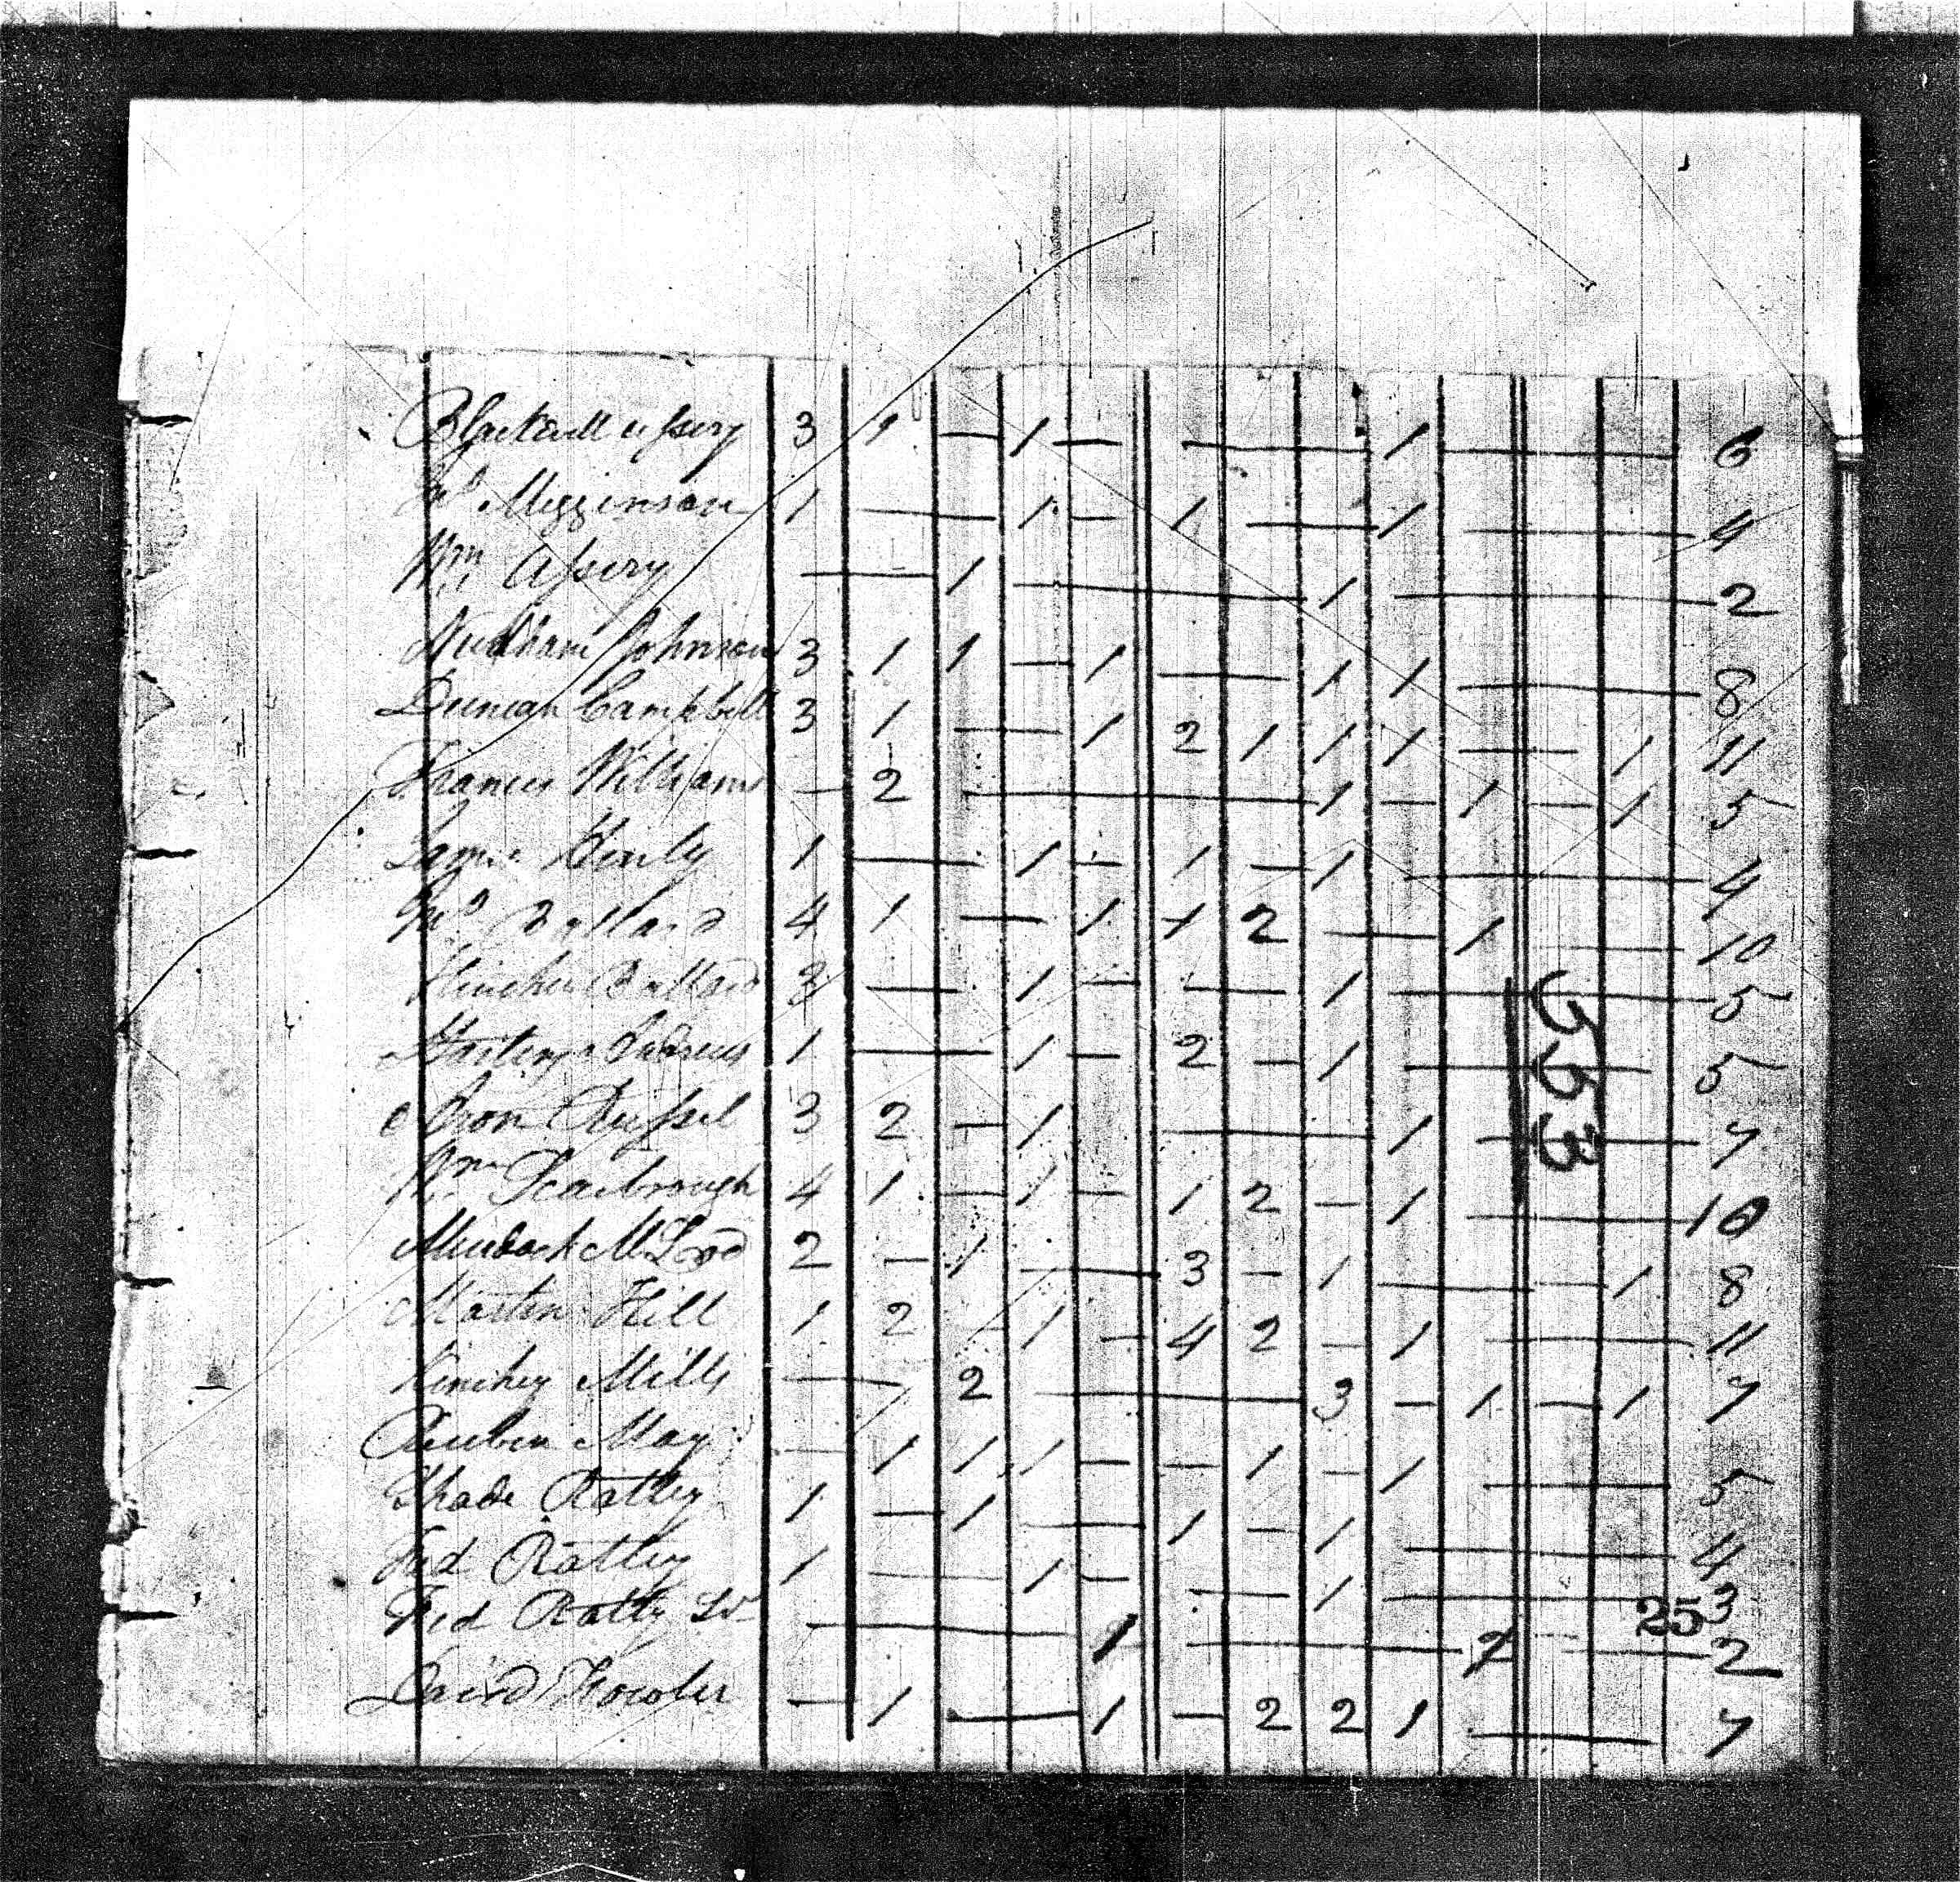 Blackwell Assery 3 1 — 1 — — 1 — 6
Jno Megginson 1 — 1 — 1 — 1 — 4
Wm Assery — 1 — 1 — 2
Needham Johnson 3 1 1 — 1 — 1 1 — 8
Duncan Campbell 3 1 — 1 2 1 1 1 — 1 11
Francis Williams — 2 — 1 — 1 — 1 5
James 1 — 1 — 1 — 1 — 4
Jno Ballard 4 1 — 1 1 2 — 1 — 10
Ballard 3 — 1 — — 1 — 5
Andrews 1 — 1 — 2 — 1 — 5
Aron Russel 3 2 — 1 — 1 — 7
Wm Scarbrough 4 1 — 1 — 1 2 — 1 — 10
Murdock McLeod 2 — 1 — 3 — 1 — — 1 8
Martin Hill 1 2 — 1 — 4 2 — 1 — 11
Kinchey Mills — 2 — 3 — 1 — 1 7
Reuben May — 1 1 1 — — 1 — 1 — 5
Shade Ratley 1 — 1 — 1 — 1 — 4
Fred Ratley 1 — 1 — — 1 — 3
Fred Ratley Sr — 1 — 1 — — 2
David Fowler — 1 — 1 — 2 2 1 — 7
553
25